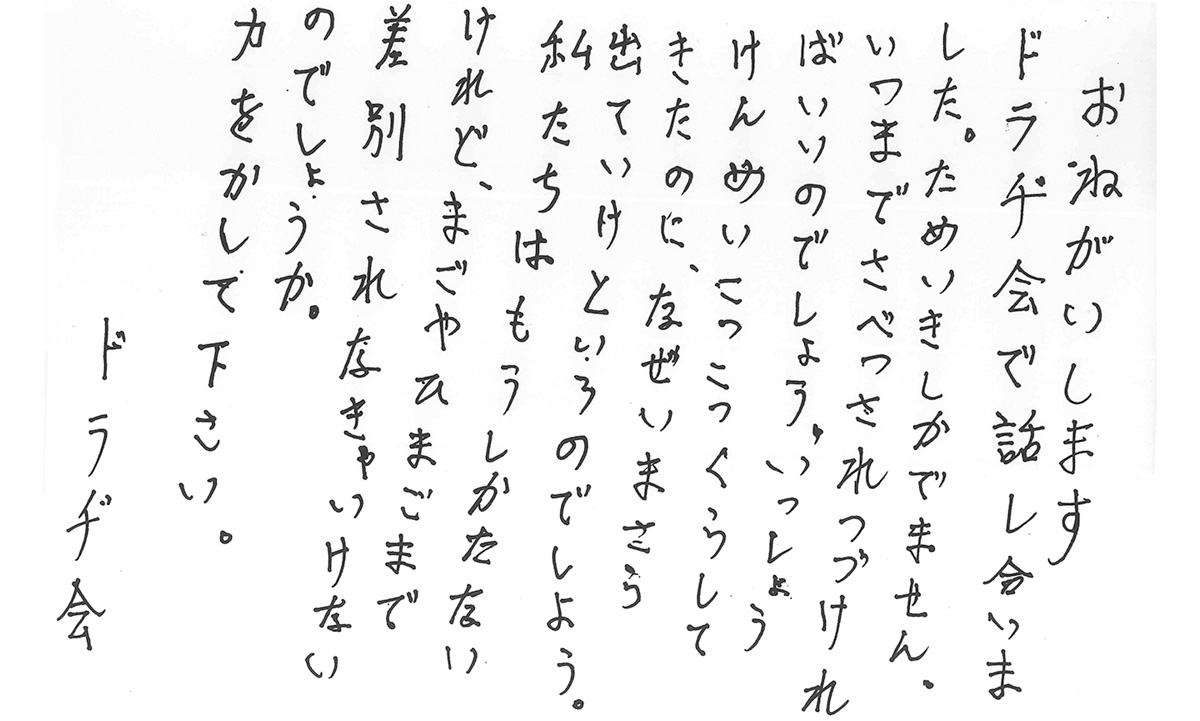 おねがいします
ドラヂ会で話し合いま
した。ためいきしかでません。
いつまでさべつされつづけれ
ばいいのでしょう。いっしょう
けんめいこつこつくらして
きたのに、なぜいまさら
出ていけというのでしよう。
私たちはもうしかたない
けれど、まごやひまごまで
差別されなきゃいけない
のでしょうか。
力をかして下さい。
ドラヂ会